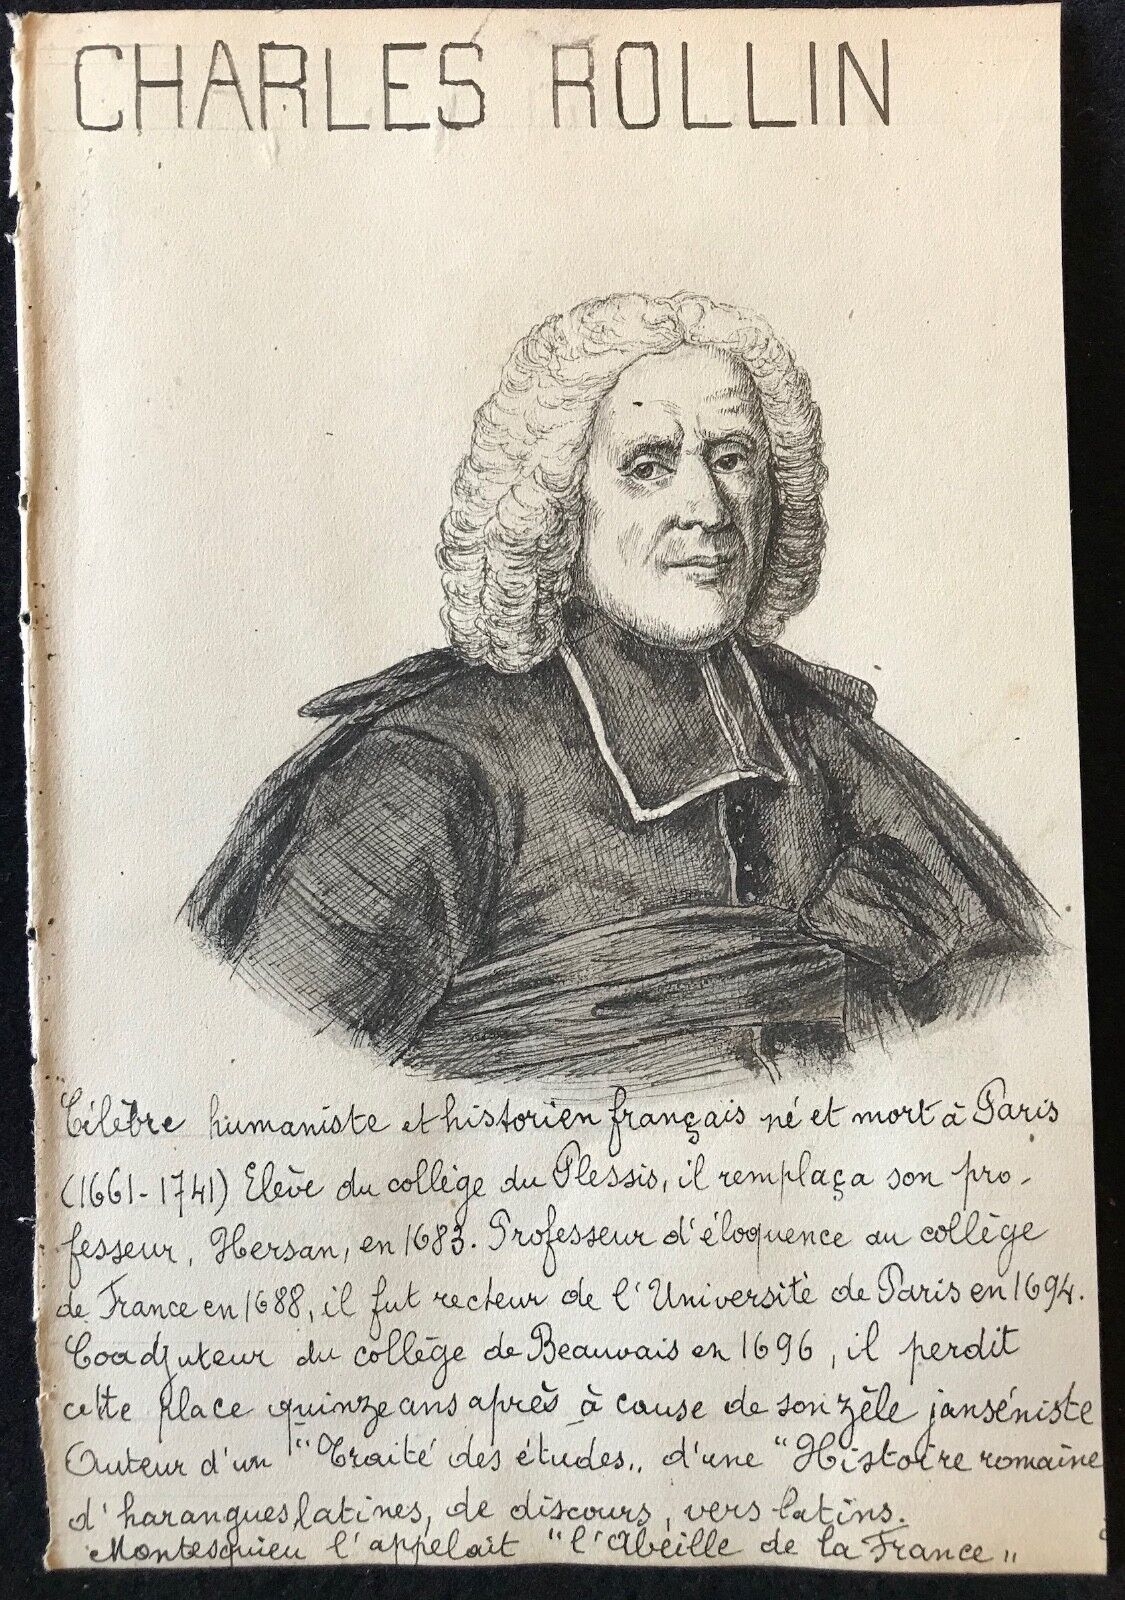 CHARLES ROLLIN
"Célèbre humaniste et historien français né et mort à Paris
(1661-1741) Elève du collège du Plessis, il remplaça son pro-
fesseur, Hersan, en 1683. Professeur d'éloquence au collège
de France en 1688, il fut recteur de l'Université de Paris en 1694.
Coadjuteur du collège de Beauvais en 1696, il perdit
cette place quinze ans après à cause de son zèle janséniste
Auteur d'un "Traité des études,, d'une "Histoire romaine
d'harangues latines, de discours, vers latins.
Montesquieu l'appelait "l'Abeille de la France„